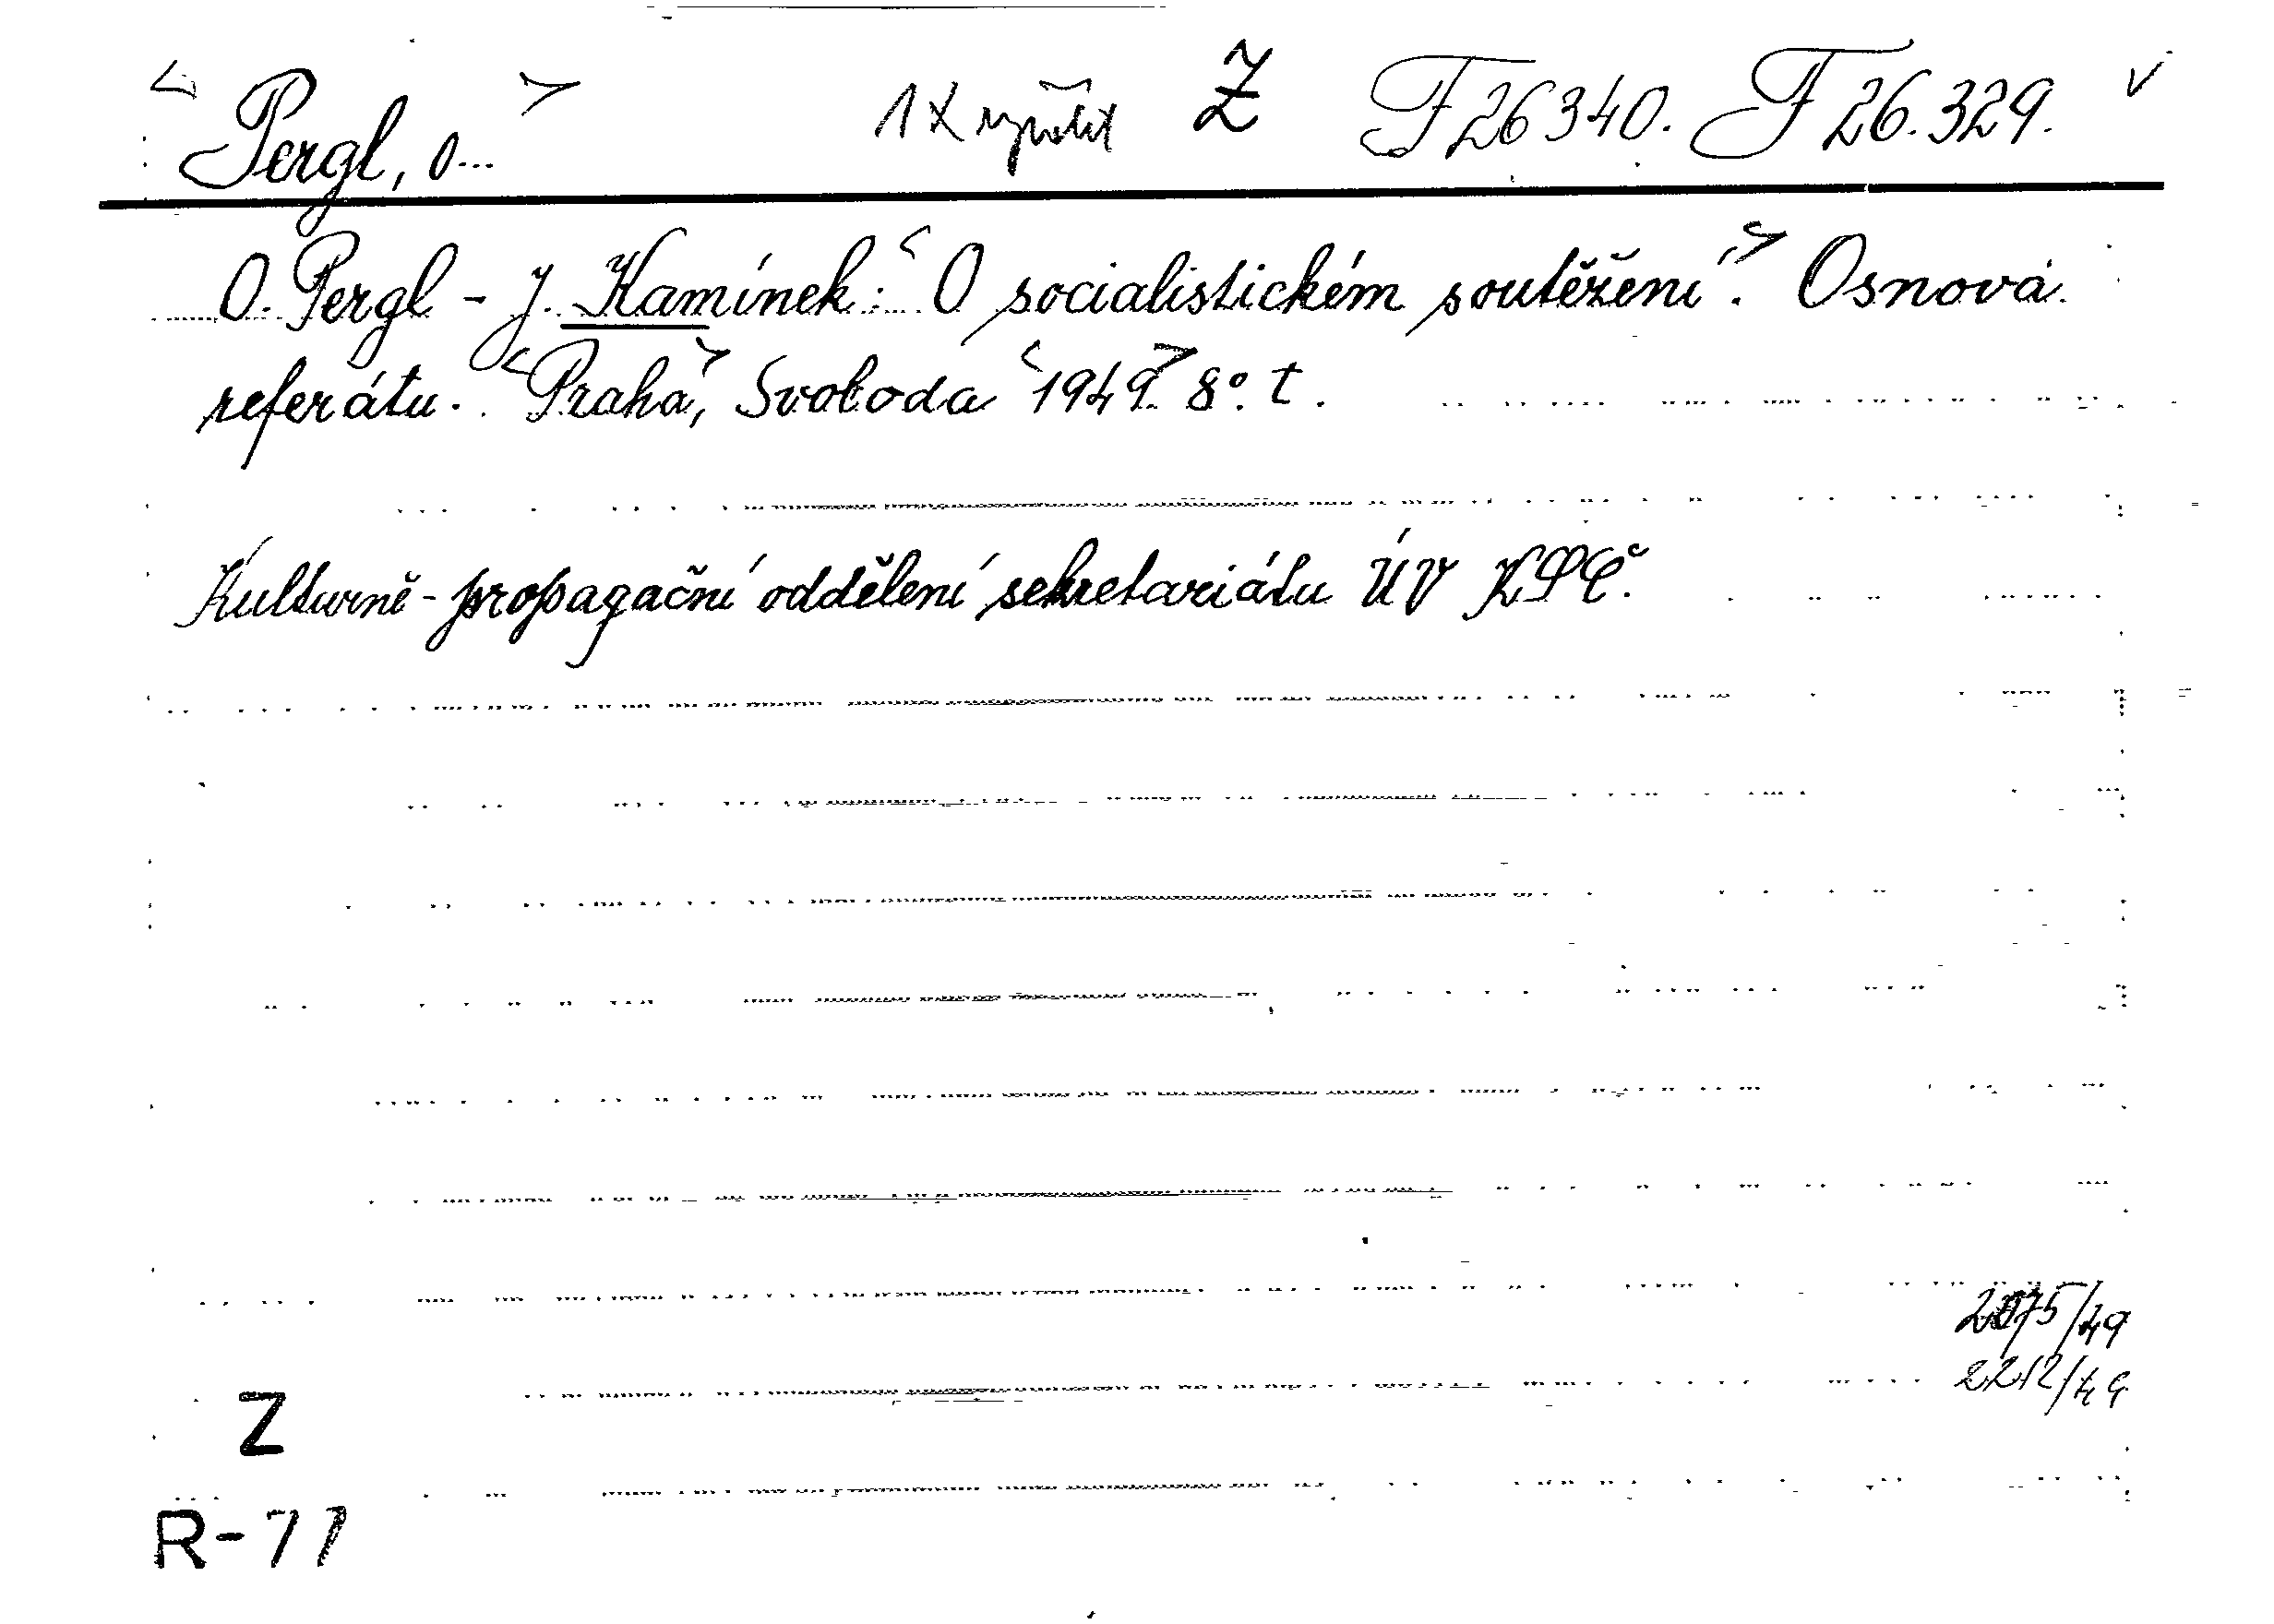 < Pergl, O... > 1x Z F 26340. F 26.329. v
O. Pergl - J. Kamínek: < O socialistickém soutěžení. > Osnova
referátu. <Praha>, Svoboda <1949>. 8°. t.
Kulturně-propagační oddělení sekretariátu ÚV KSČ.
2075/49
2212/49
Z
R-77